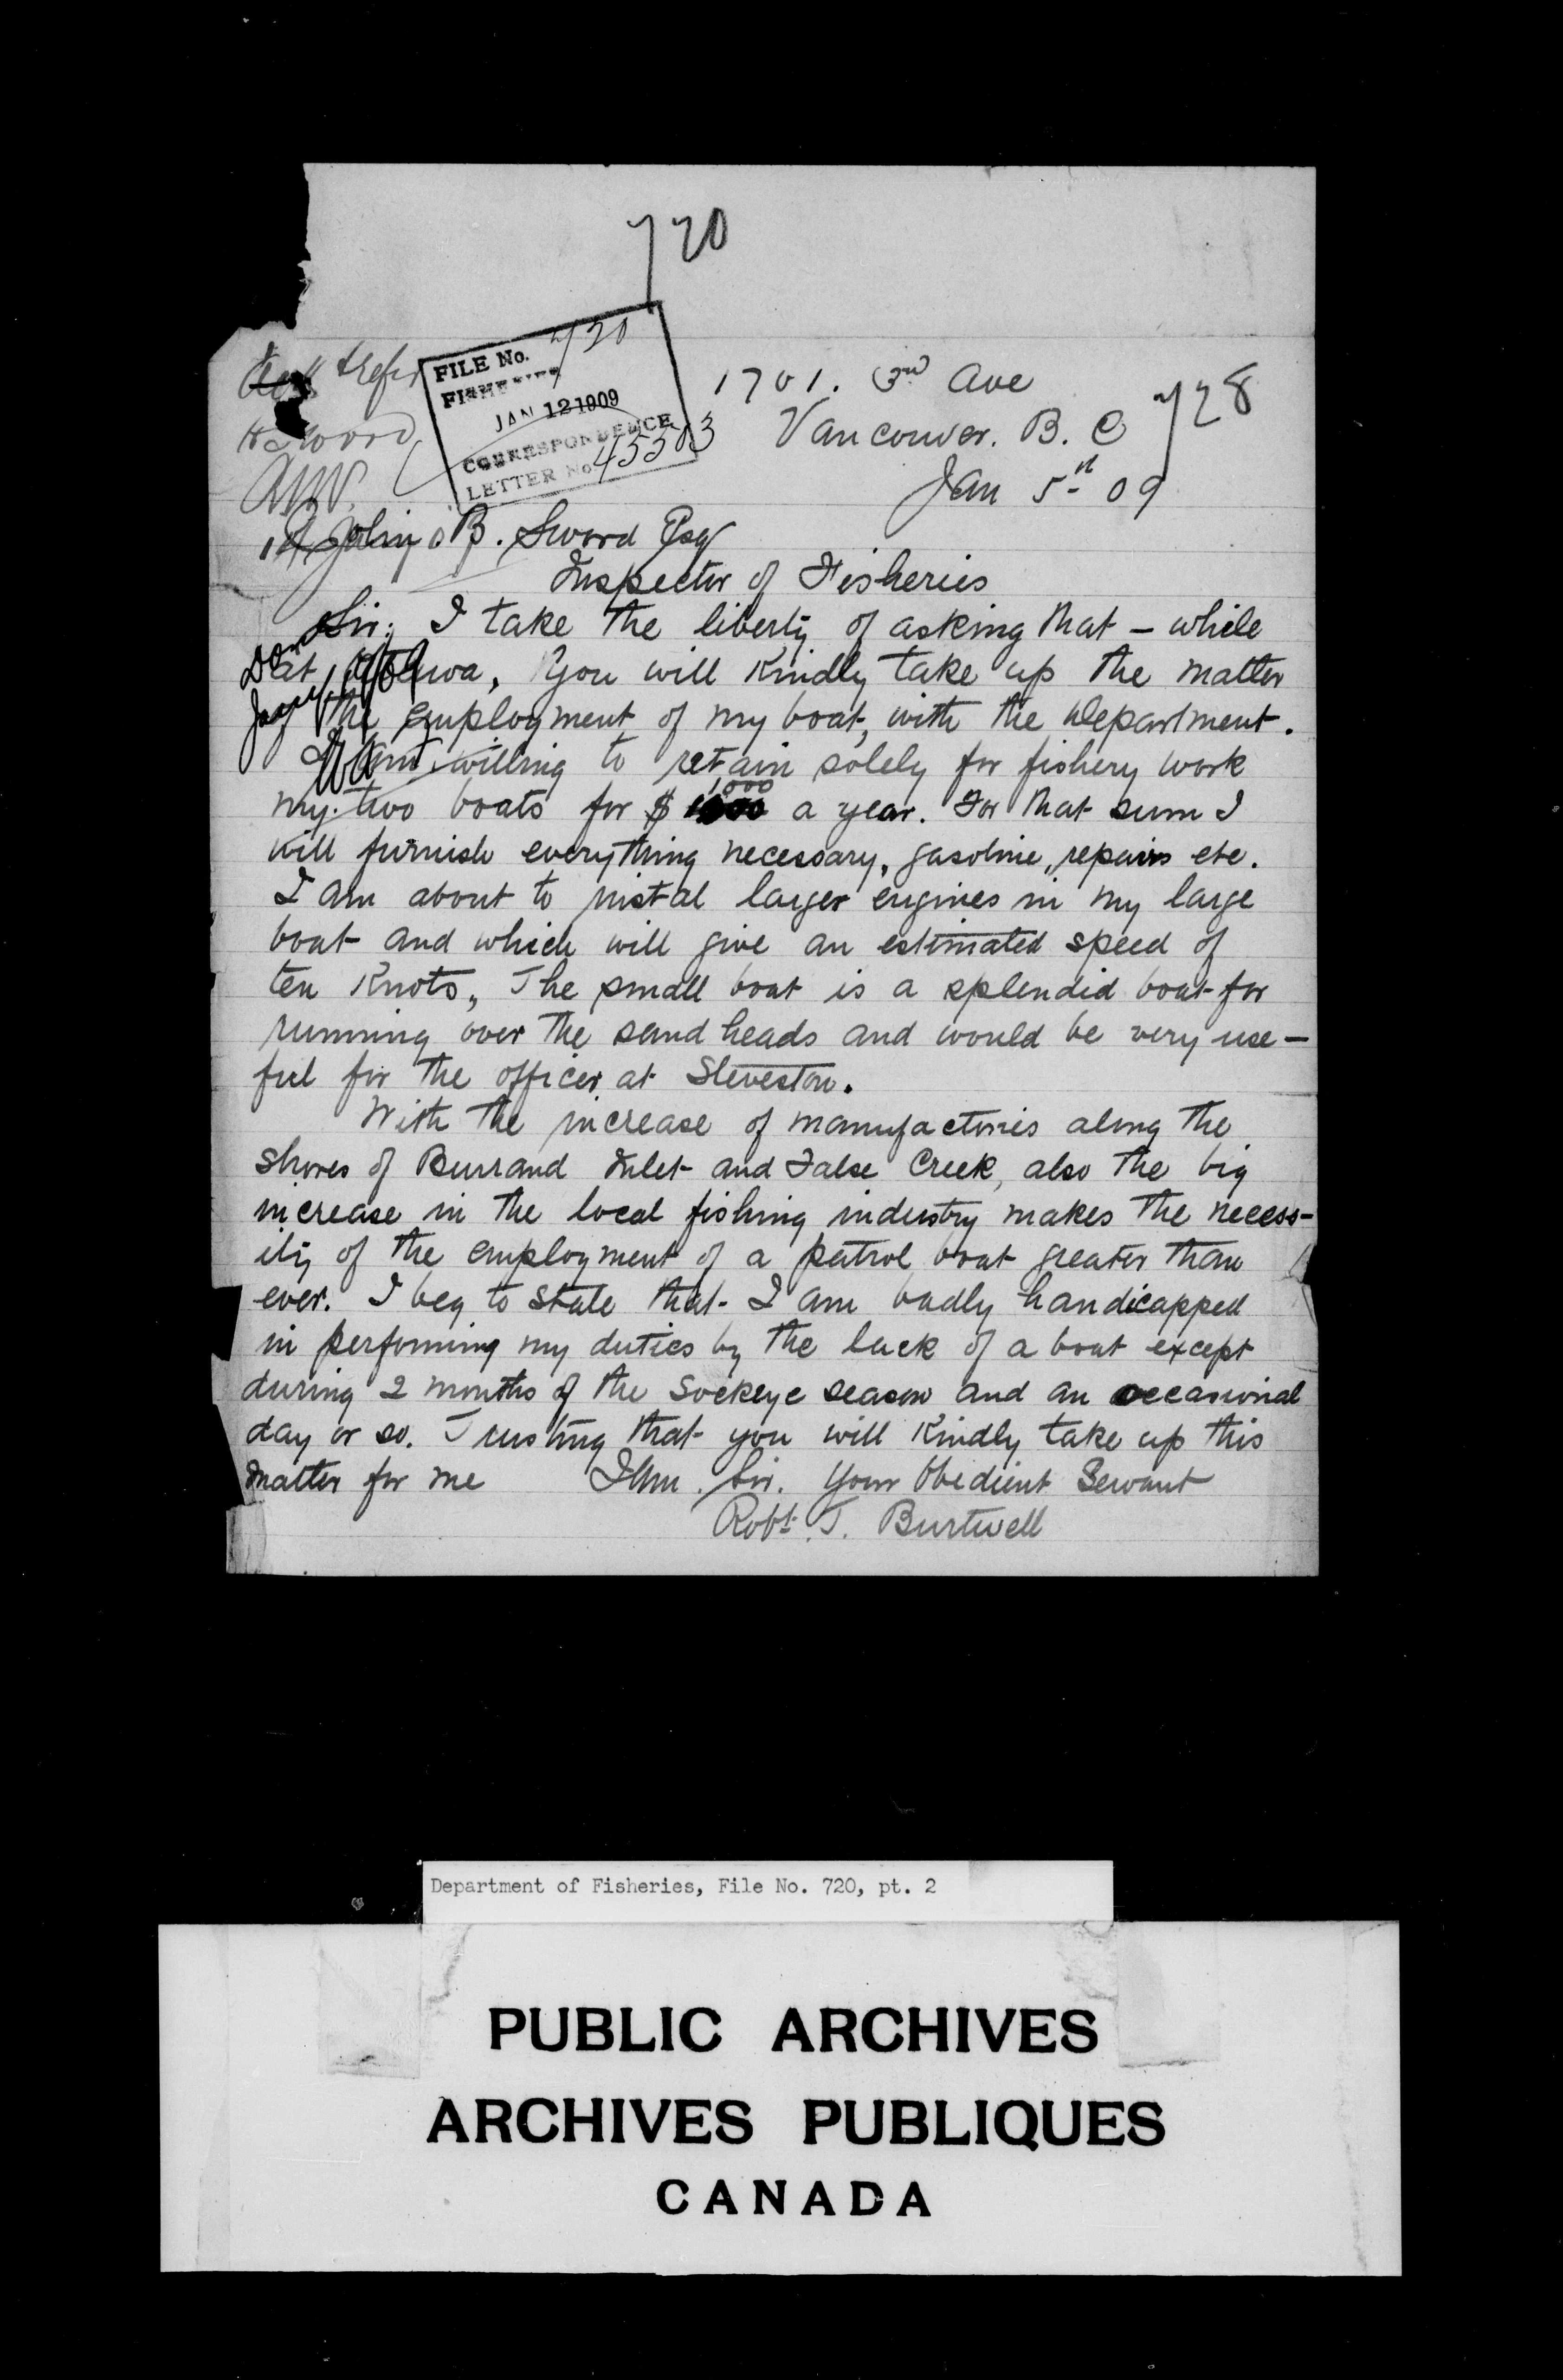 720
FILE No. 720
FISHERIES
JAN 12 1909
CORRESPONDENCE
LETTER No. 45503
1701. 3rd Ave
Vancouver. B. C
728
Jan 5th 09
John B. Sword Esq
Inspector of Fisheries
Sir; I take the liberty of asking that – while
at Ottawa, you will Kindly take up the matter
of the employment of my boat, with the Department.
I am willing to retain solely for fishery work
my two boats for $ 1,000 a year. For that sum I
will furnish everything necessary, gasoline, repairs etc.
I am about to instal larger engines in my large
boat and which will give an estimated speed of
ten Knots, The small boat is a splendid boat for
running over the sand heads and would be very use–
ful for the officer at Steveston.
With the increase of manufactories along the
shores of Burrand Inlet and False Creek, also the big
increase in the local fishing industry makes the necess–
ity of the employment of a patrol boat greater than
ever. I beg to state that I am badly handicapped
in performing my duties by the lack of a boat except
during 2 months of the Sockeye season and an occasional
day or so. Trusting that you will Kindly take up this
matter for me I Am. Sir. Your Obedient Servant
Robt. T. Burtwell
Department of Fisheries, File No. 720, pt. 2
PUBLIC ARCHIVES
ARCHIVES PUBLIQUES
CANADA